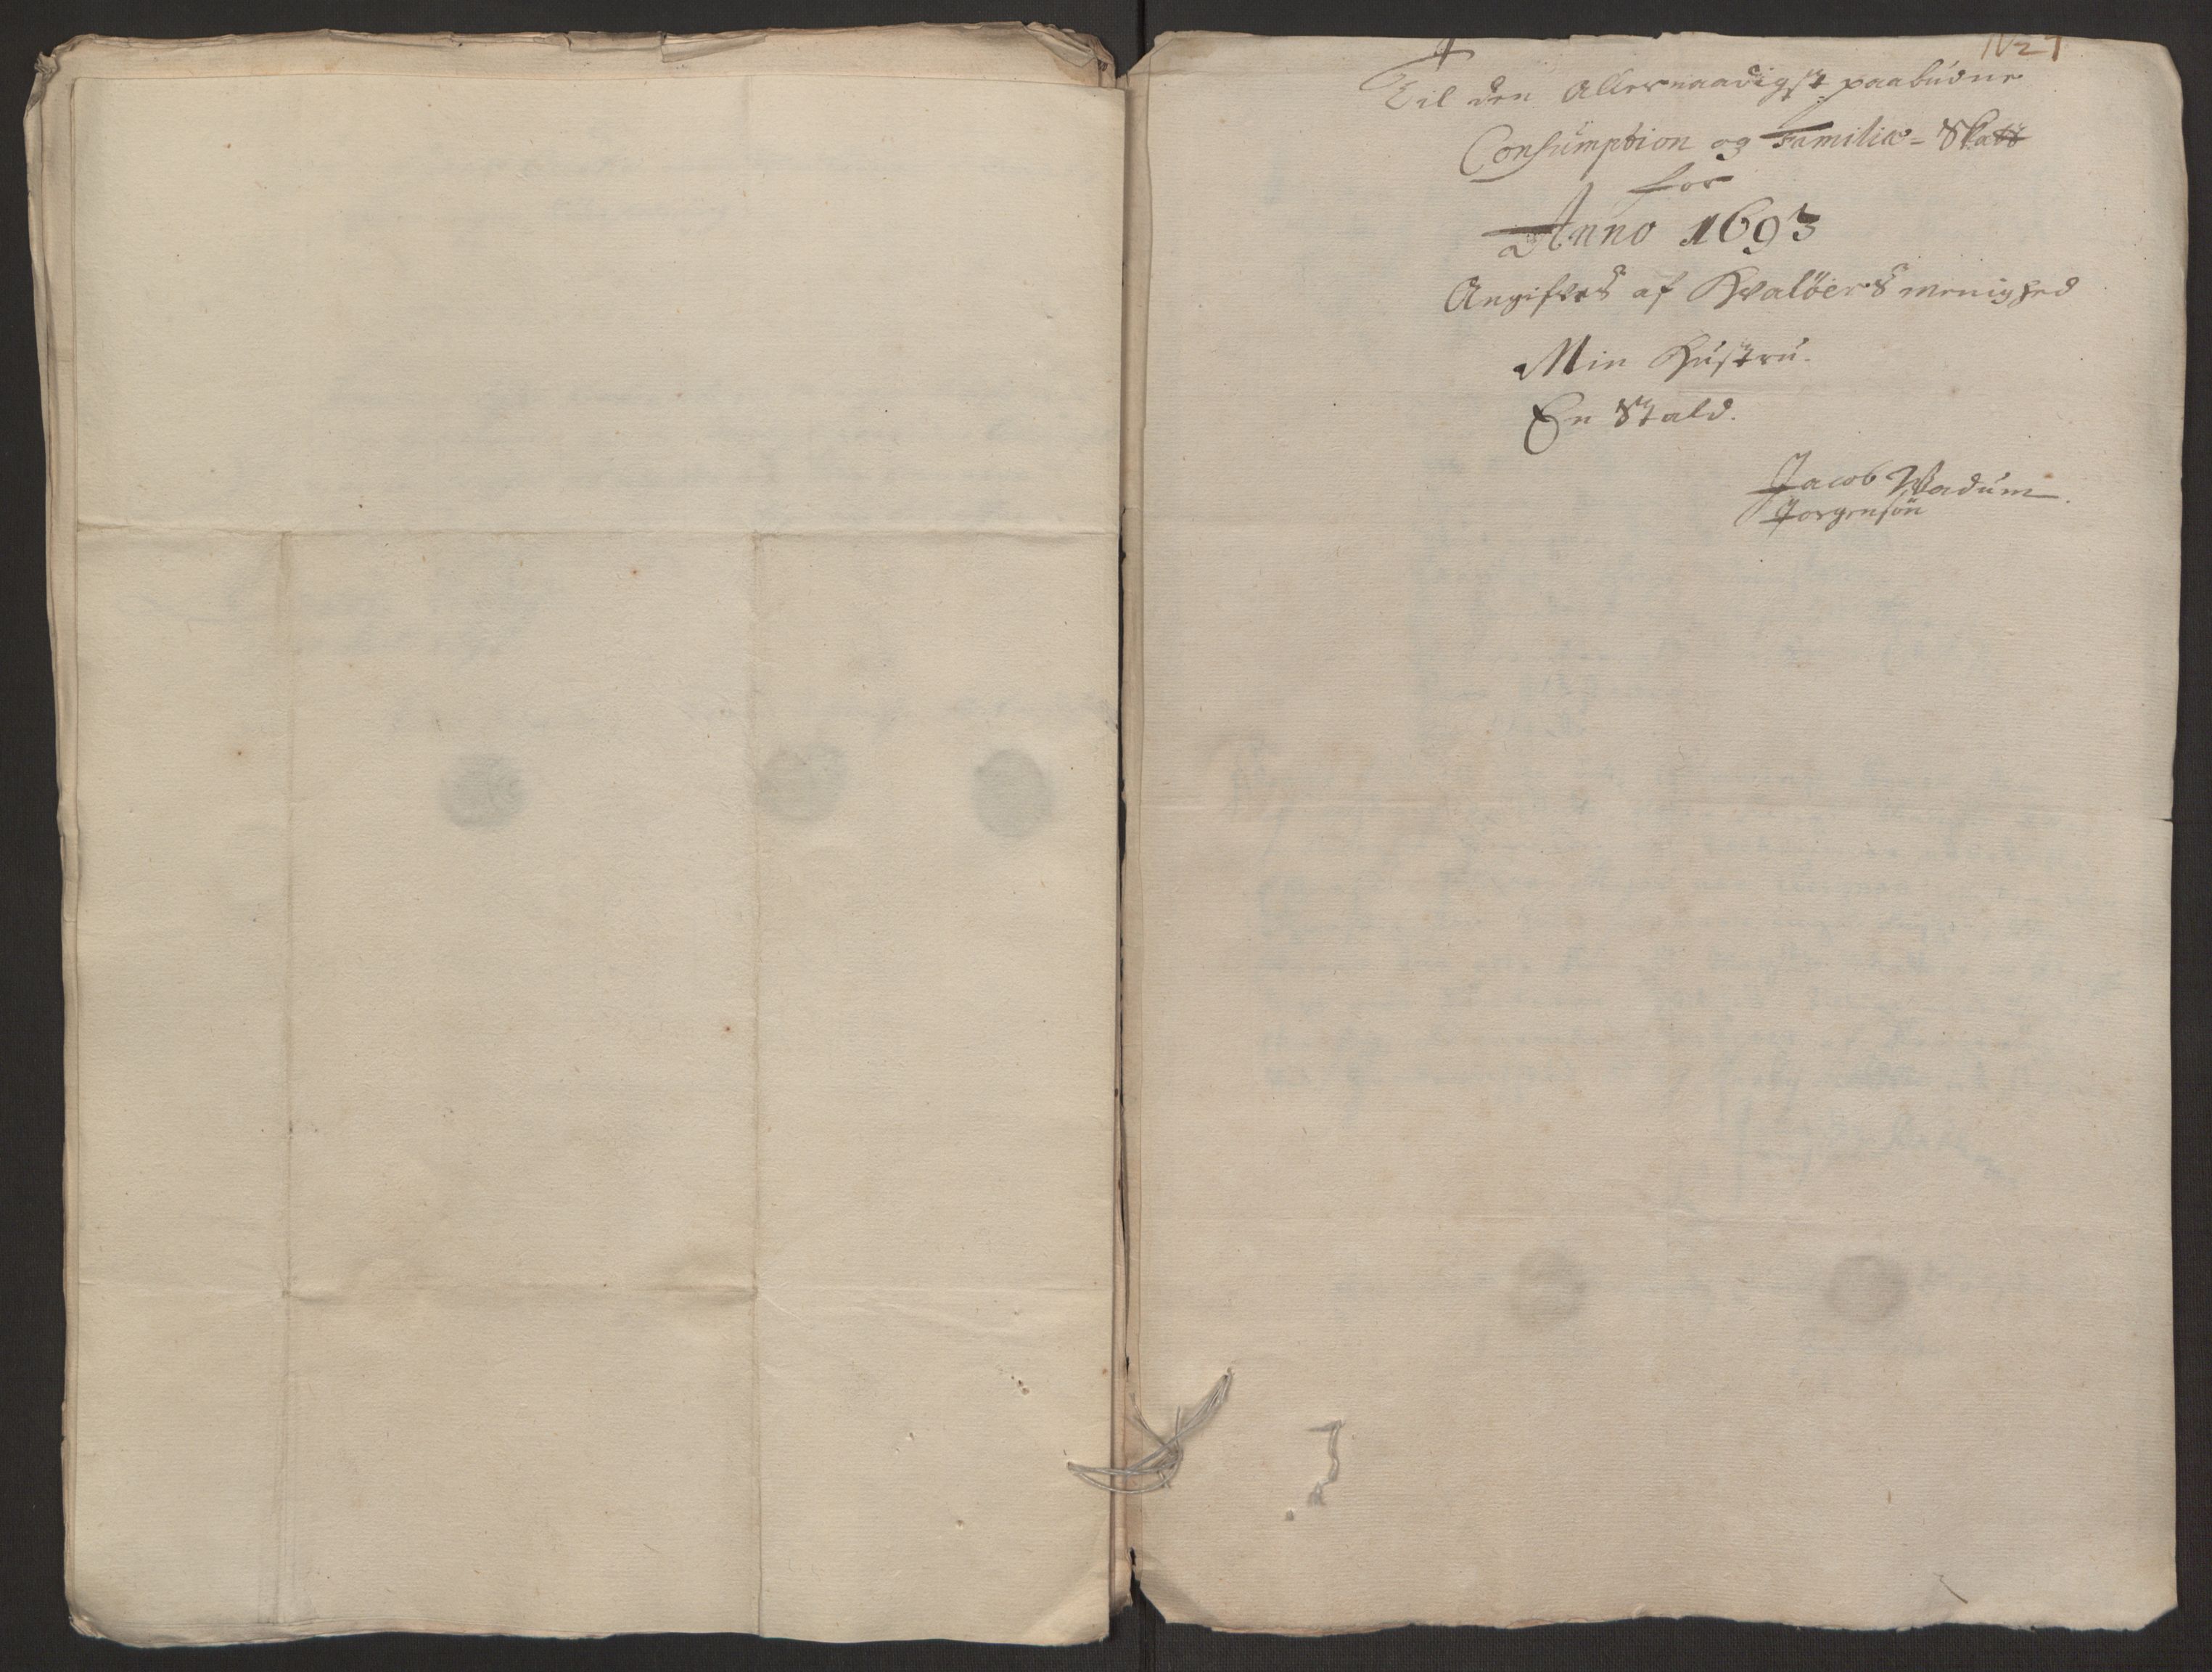 N 21
Til den Allernaadigst paabudne
Consumption og Familie-Skatt
for
Anno 1693
Angifves af Hvaløers menighed
Min Hustru.
En Stald.
Jacob Wadum
Jørgensøn